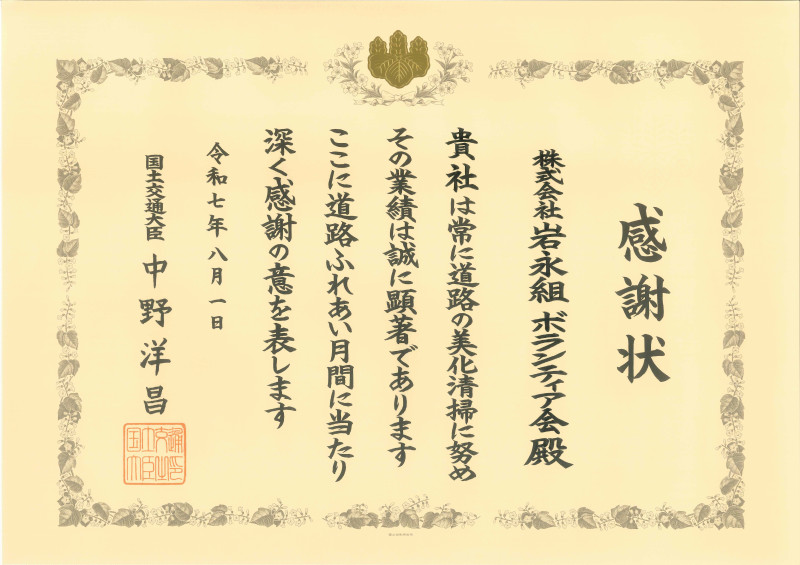 感謝状
株式会社 岩永組 ボランティア会 殿
貴社は常に道路の美化清掃に努め
その業績は誠に顕著であります
ここに道路ふれあい月間に当たり
深く感謝の意を表します
令和七年八月一日
国土交通大臣 中野洋昌